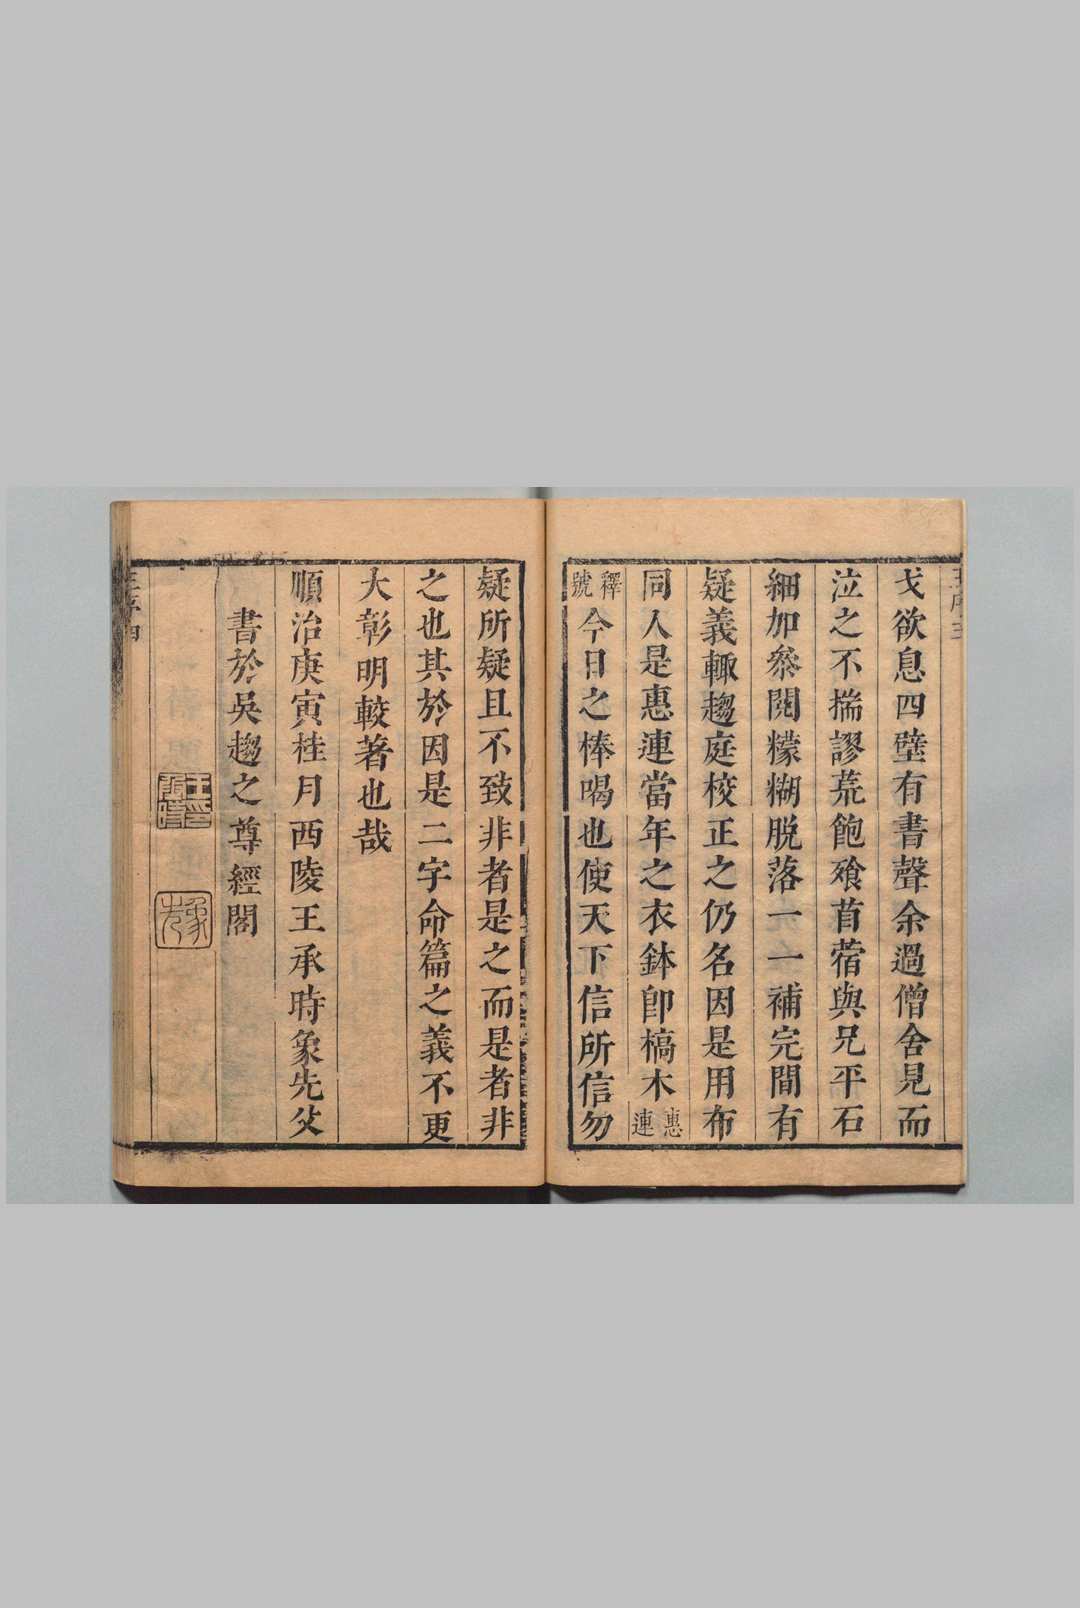 戈欲息四壁有書聲余過僧舍見而
泣之不揣謬荒飽飱苜蓿與兄平石
細加叅閱糢糊脱落一一補完間有
疑義輙趨庭校正之仍名因是用布
同人是惠連當年之衣鉢卽槁木惠連
釋號今日之棒喝也使天下信所信勿
疑所疑且不致非者是之而是者非
之也其於因是二字命篇之義不更
大彰明較著也哉
順治庚寅桂月西陵王承時象先父
書於吳趨之尊經閣
象先